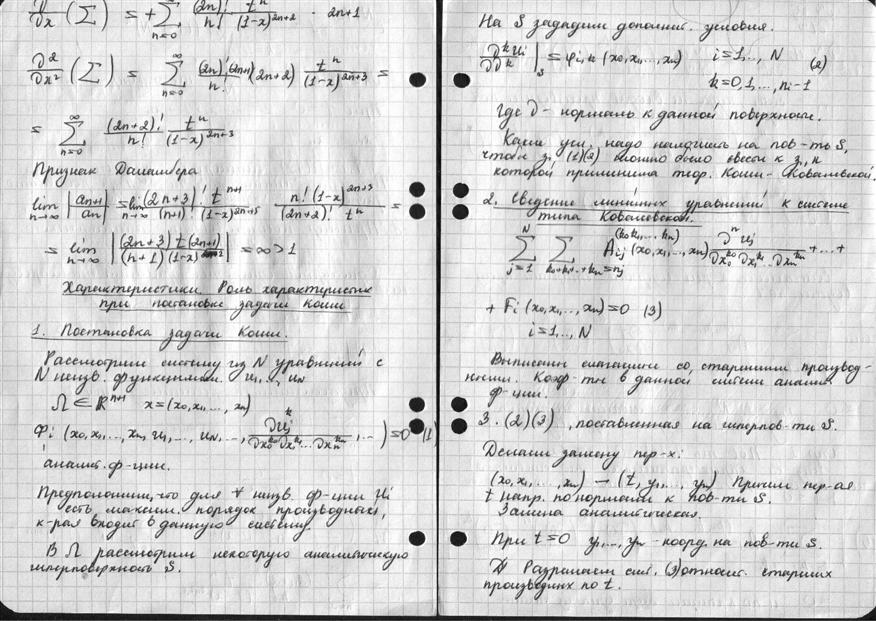 ∂/∂x (Σ) = + Σ_{n=0}^{∞} (2n)!/n! t^n/(1-x)^{2n+2} · 2n+1
∂²/∂x² (Σ) = Σ_{n=0}^{∞} (2n)!/n! (2n+1)(2n+2) t^n/(1-x)^{2n+3} =
= Σ_{n=0}^{∞} (2n+2)!/n! t^n/(1-x)^{2n+3}
Признак Даламбера
lim_{n→∞} |a_{n+1}/a_n| = lim_{n→∞} |(2n+3)!/(n+1)! t^{n+1}/(1-x)^{2n+5} n!(1-x)^{2n+3}/((2n+2)! t^n)| =
= lim_{n→∞} |(2n+3) t (2n+1)/((n+1)(1-x)²)| = ∞ > 1
Характеристики. Роль характеристик
при постановке задачи Коши
1. Постановка задачи Коши.
Рассмотрим систему из N уравнений с
N неизв. функциями. u₁, ..., u_N
Ω ∈ ℝ^{n+1} x = (x₀, x₁, ..., x_n)
Φ_i (x₀, x₁, ..., x_n, u₁, ..., u_N, ..., ∂^k u_j/∂x₀^{k₀} ∂x₁^{k₁} ... ∂x_n^{k_n}, ...) = 0 (1)
аналит. ф-ции.
Предположим, что для ∀ неизв. ф-ции u_i
есть максим. порядок производных,
к-рая входит в данную систему.
В Ω рассмотрим некоторую аналитическую
гиперповерхность S.
На S зададим дополнит. условия.
∂^k u_i/∂ν^k |_S = φ_{i,k} (x₀, x₁, ..., x_n) i = 1, .., N (2)
k = 0, 1, ..., n_i - 1
Где ν - нормаль к данной поверхности.
Какие усл. надо наложить на пов-ть S,
чтобы з. (1)(2) можно было свести к з., к
которой применима теор. Коши-Ковалевской.
2. Сведение линейных уравнений к системе
типа Ковалевской.
Σ_{j=1}^{N} Σ_{k₀+k₁+..+k_n=n_j} A_{ij}^{(k₀,k₁,...,k_n)} (x₀, x₁, ..., x_n) ∂^n u_j/∂x₀^{k₀} ∂x₁^{k₁} ... ∂x_n^{k_n} + ... +
+ F_i (x₀, x₁, ..., x_n) = 0 (3)
i = 1, .., N
Выписаны слагаемые со старшими производ-
ными. Коэф-ты в данной системе аналит.
ф-ции.
3. (2)(3), поставленная на гиперпов-ти S.
Делаем замену пер-х:
(x₀, x₁, ..., x_n) → (t, y₁, ..., y_n) Причем пер-ая
t напр. по нормали к пов-ти S.
Замена аналитическая.
При t = 0 y₁, ..., y_n - коорд. на пов-ти S.
Разрешаем сист. (3) относит. старших
производных по t.